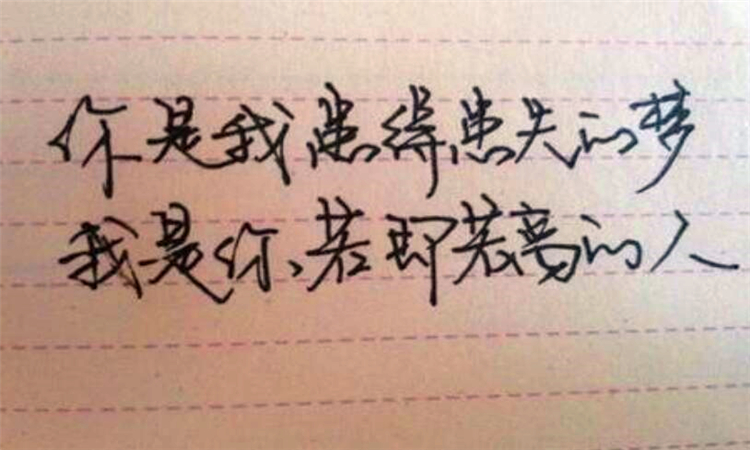 你是我患得患失的梦
我是你若即若离的人